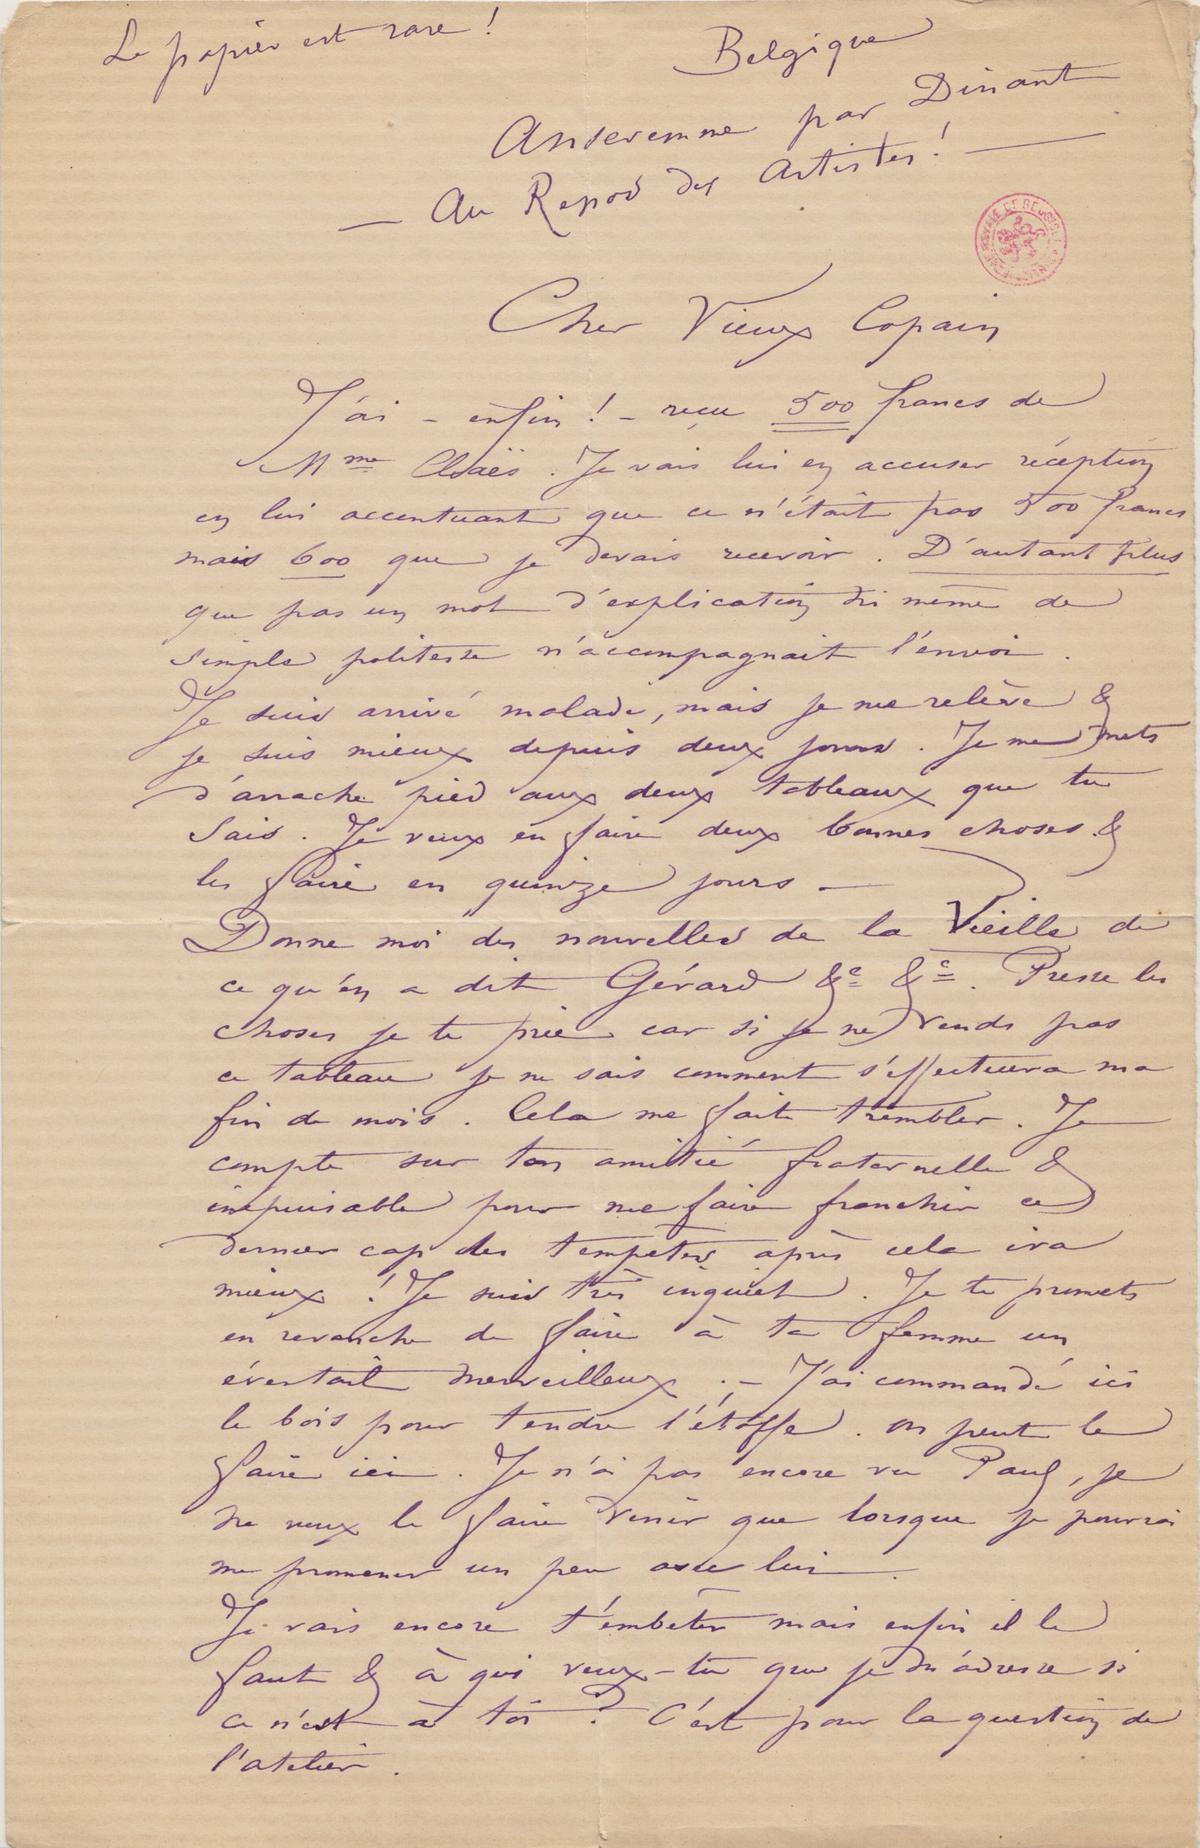 Le papier est rare !
Belgique
Anseremme par Dinant
— Au Repos des Artistes ! —
Cher Vieux Copain
J'ai – enfin ! – reçu 500 francs de
Mme Claës. Je vais lui en accuser réception
en lui accentuant que ce n'était pas 500 francs
mais 600 que je devais recevoir. D'autant plus
que pas un mot d'explication ni même de
simple politesse n'accompagnait l'envoi.
Je suis arrivé malade, mais je me relève &
je suis mieux depuis deux jours. Je me mets
d'arrache pied aux deux tableaux que tu
sais. Je veux en faire deux bonnes choses &
les faire en quinze jours —
Donne moi des nouvelles de la Vieille de
ce qu'en a dit Gérard &c &c. Presse les
choses je te prie car si je ne vends pas
ce tableau je ne sais comment s'effectuera ma
fin de mois. Cela me fait trembler. Je
compte sur ton amitié fraternelle &
inépuisable pour me faire franchir ce
dernier cap des tempêtes après cela ira
mieux ! Je suis très inquiet. Je te promets
en revanche de faire à ta femme un
éventail merveilleux. – J'ai commandé ici
le bois pour tendre l'étoffe. on peut le
faire ici. Je n'ai pas encore vu Paul, je
ne veux le faire venir que lorsque je pourrai
me promener un peu avec lui —.
Je vais encore t'embêter mais enfin il le
faut & à qui veux-tu que je m'adresse si
ce n'est à toi ? C'est pour la question de
l'atelier.